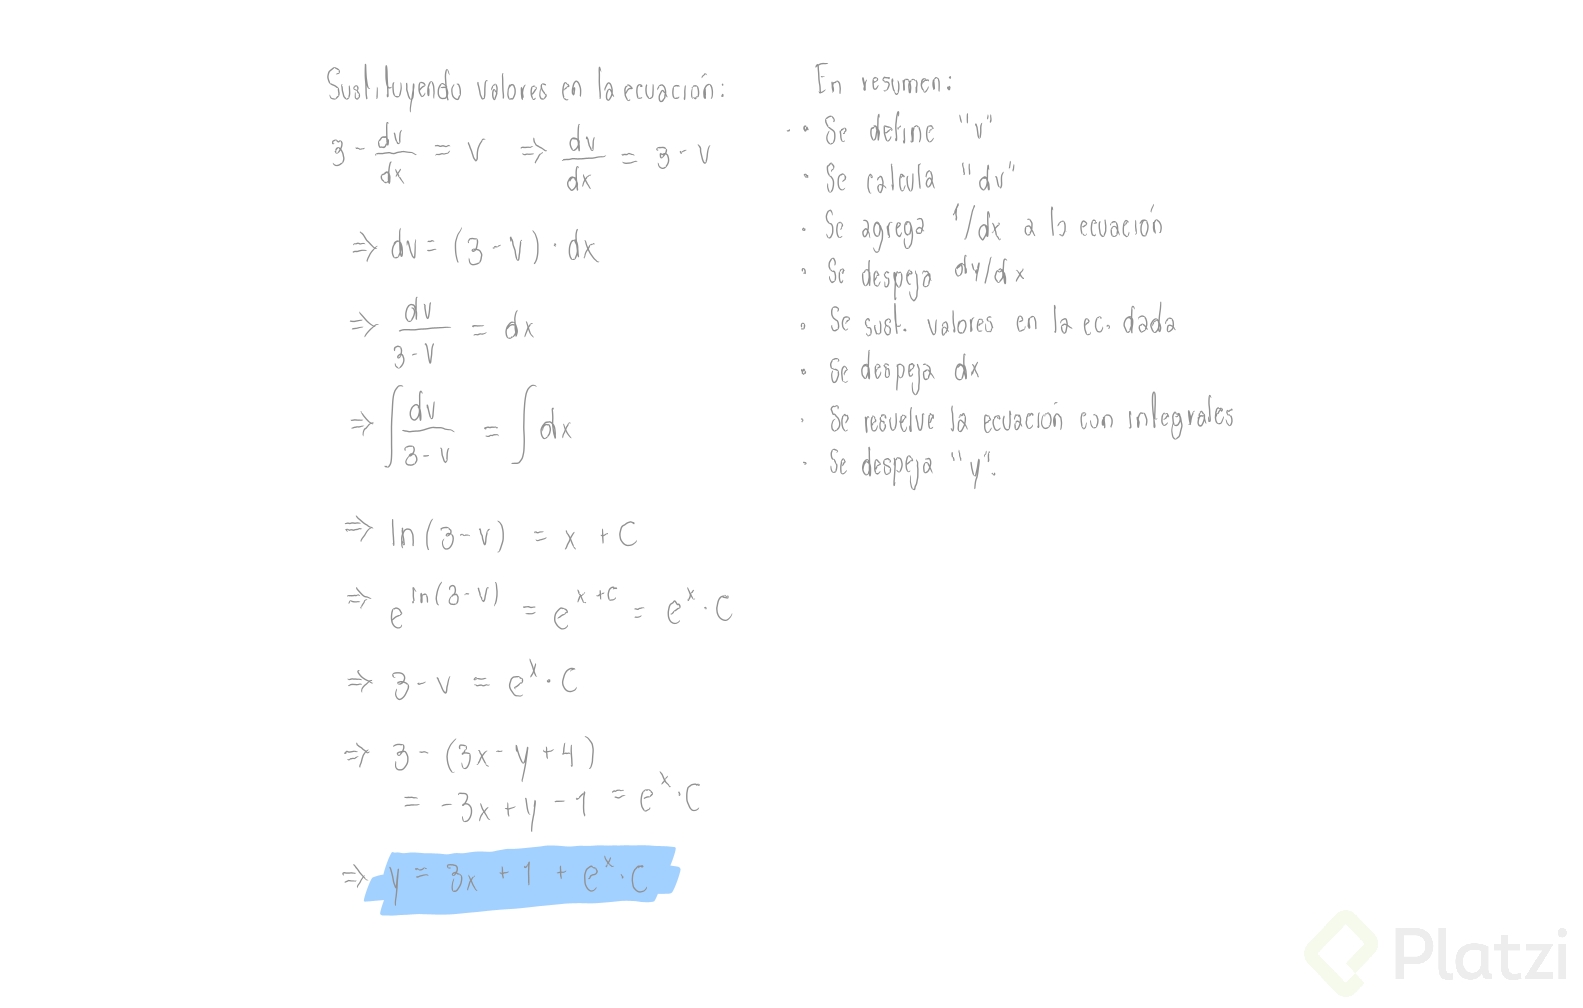 Sustituyendo valores en la ecuación:
3 - dv/dx = v ⇒ dv/dx = 3 - v
⇒ dv = (3 - v) · dx
⇒ dv/3 - v = dx
⇒ ∫ dv/3 - v = ∫ dx
⇒ ln(3 - v) = x + C
⇒ e^ln(3 - v) = e^x + C = e^x · C
⇒ 3 - v = e^x · C
⇒ 3 - (3x - y + 4)
= -3x + y - 1 = e^x · C
⇒ y = 3x + 1 + e^x · C
En resumen:
· Se define "v"
· Se calcula "dv"
· Se agrega 1/dx a la ecuación
· Se despeja dy/dx
· Se sust. valores en la ec. dada
· Se despeja dx
· Se resuelve la ecuación con integrales
· Se despeja "y".
Platzi